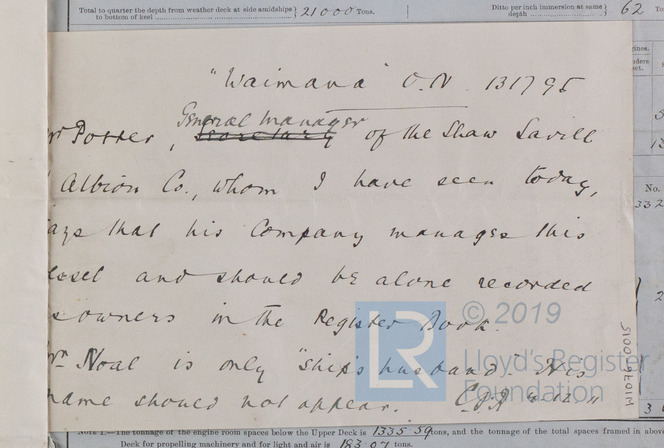 Total to quarter the depth from weather deck at side amidships to bottom of keel 21000 Tons.
Ditto per inch immersion at same depth 62
"Waimana" O.N. 131795
Mr Potter, General Manager secretary of the Shaw Savill
Albion Co., whom I have seen today,
ays that his Company manages this
essel and should be alone recorded
s owners in the Register Book.
Mr. Noal is only "ship's husband". His
name should not appear.
© 2019
LR
Lloyd's Register
Foundation
No.
332
NOTE 1.—The tonnage of the engine room spaces below the Upper Deck is 1335.59 tons, and the tonnage of the total spaces framed in above
Deck for propelling machinery and for light and air is 183.07 tons.